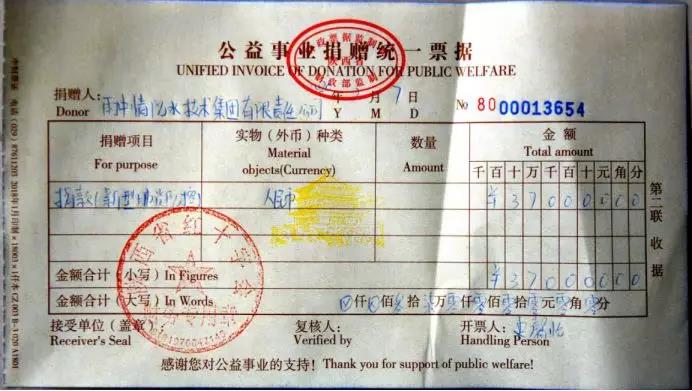 公益事业捐赠统一票据
UNIFIED INVOICE OF DONATION FOR PUBLIC WELFARE
捐赠人: 技术集团有限责任公司 年 月 7 日
Donor Y M D № 80 00013654
捐赠项目 实物(外币)种类 数量 金额
For purpose Material objects(Currency) Amount Total amount
千 百 十 万 千 百 十 元 角 分
捐款(新型 人民币 ¥ 3 7 0 0 0 0 0 0
金额合计(小写) In Figures ¥ 3 7 0 0 0 0 0 0
金额合计(大写) In Words 仟 佰 拾 万 仟 佰 拾 元 角 分
接受单位(盖章): 复核人: 开票人:
Receiver's Seal Verified by Handling Person
感谢您对公益事业的支持! Thank you for support of public welfare!
第二联 收据
陕西省
财政部监制
陕西省红十字会